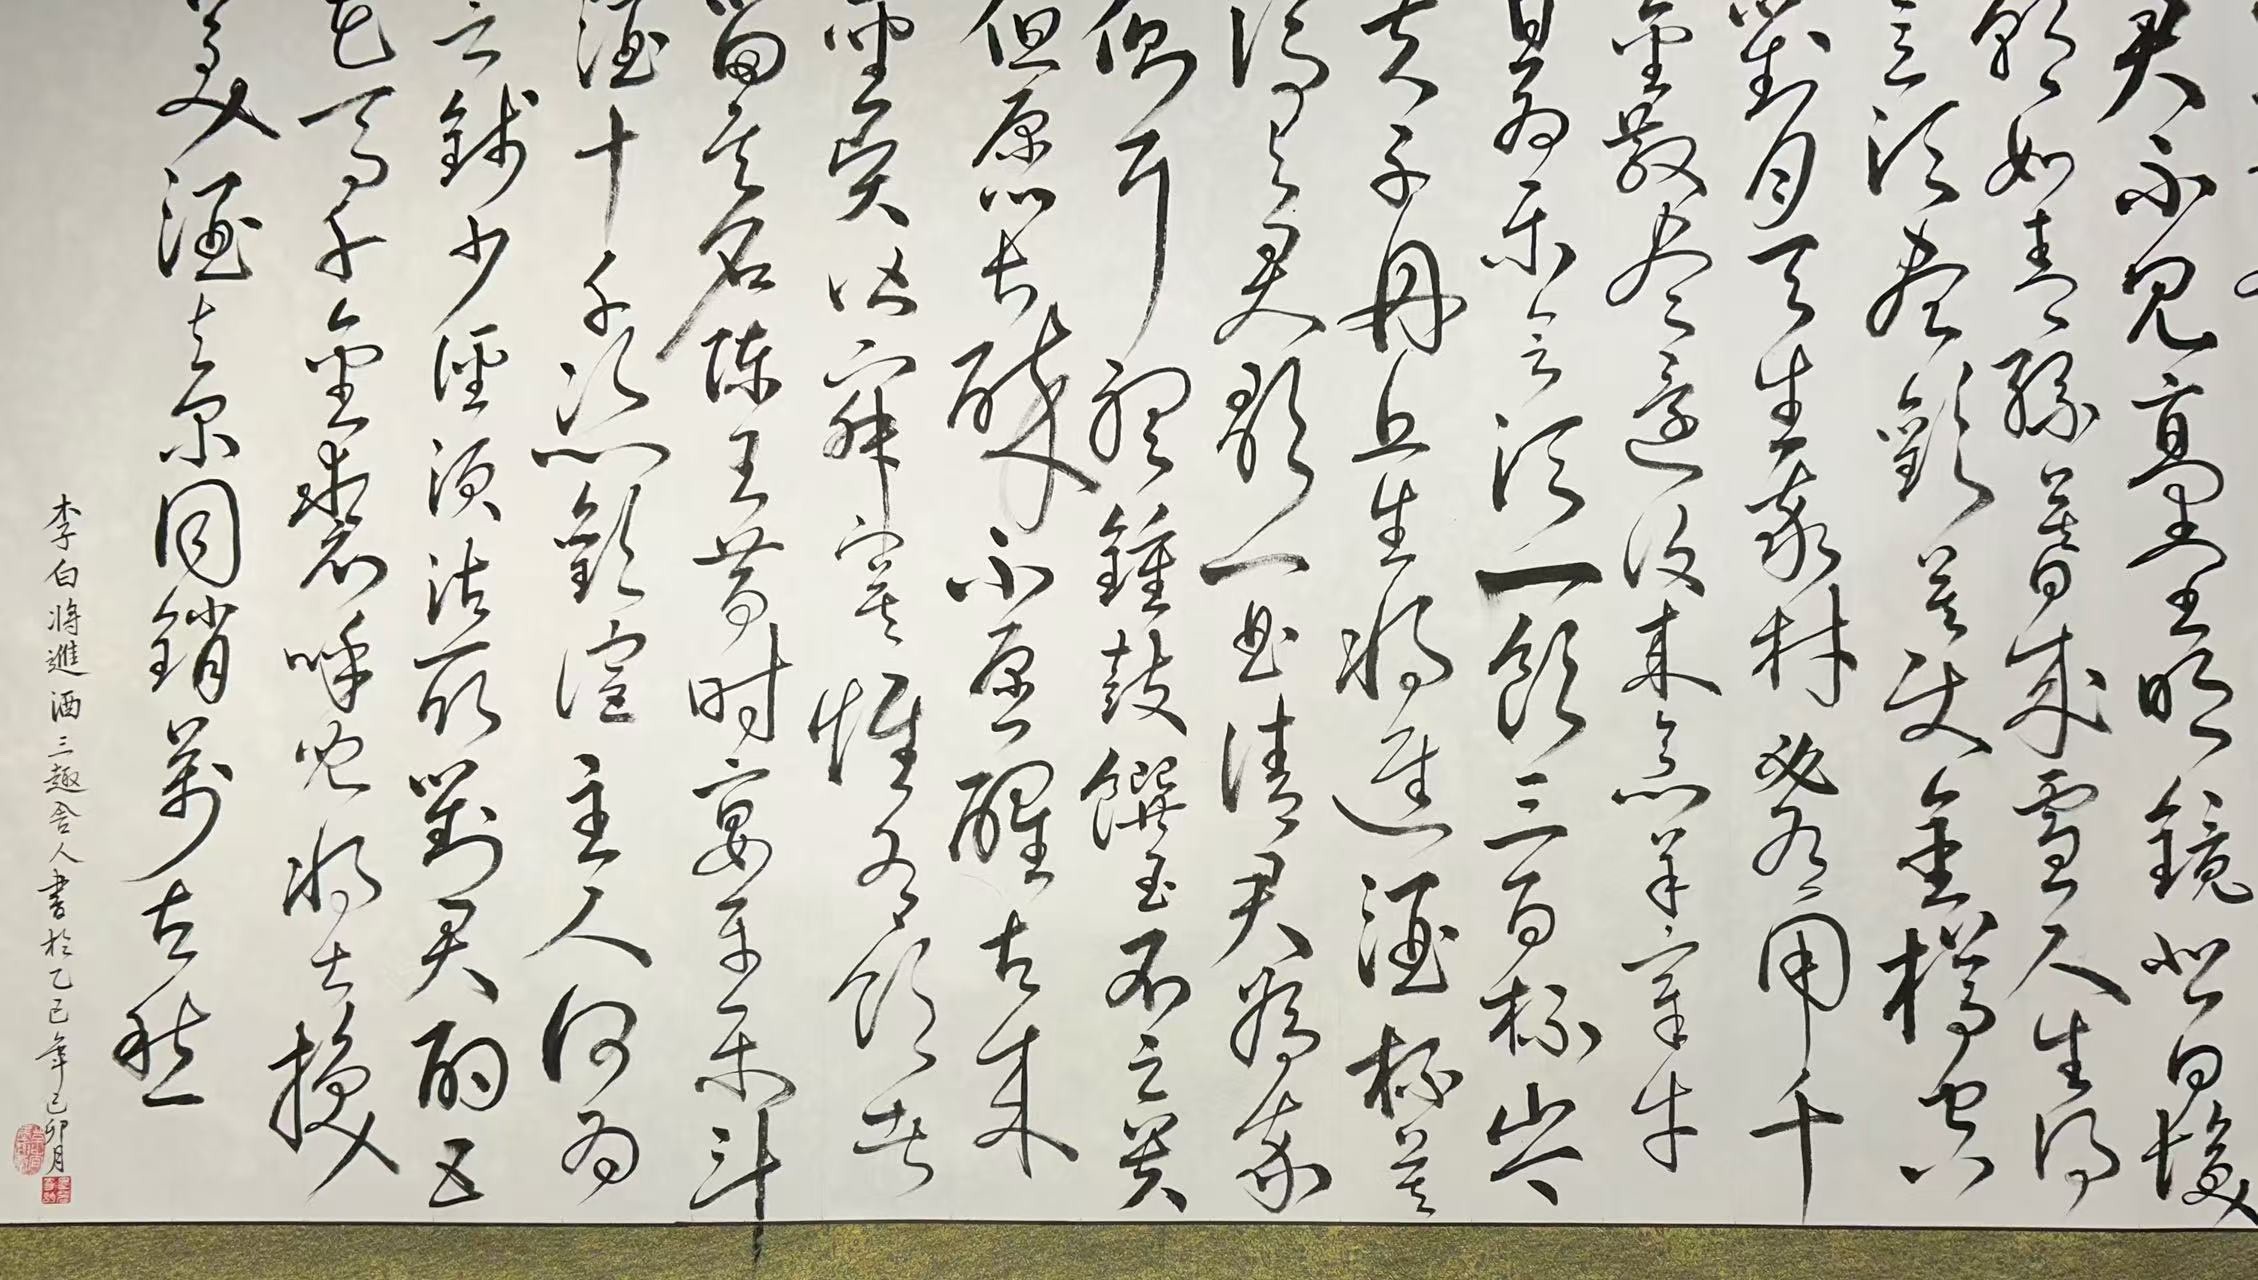 君不見高堂明鏡悲白髮
朝如青絲暮成雪人生得
意須盡歡莫使金樽空
對月天生我材必有用千
金散盡還復來烹羊宰牛
且為樂會須一飲三百杯岑
夫子丹丘生將進酒杯莫
得與君歌一曲請君為我
側耳聽鐘鼓饌玉不足貴
但願長醉不願醒古來
聖賢皆寂寞惟有飲者
留其名陳王昔時宴平樂斗
酒十千恣歡謔主人何為
言錢少徑須沽取對君酌五
花馬千金裘呼兒將出換
美酒與爾同銷萬古愁
李白將進酒三趣舍人書於乙巳年己卯月